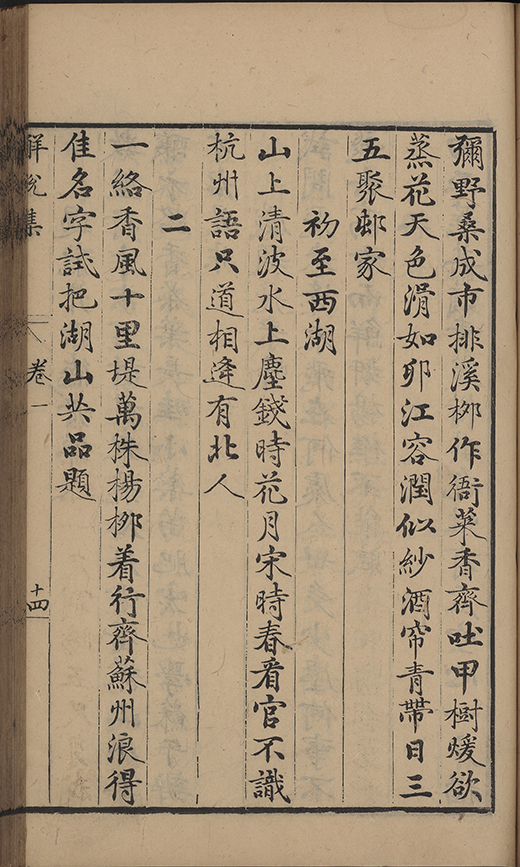 彌野桑成市排溪栁作衙菜香齊吐甲樹煖欲
蒸花天色滑如卵江容潤似紗酒帘青帶日三
五聚邸家
初至西湖
山上清波水上塵錢時花月宋時春看官不識
杭州語只道相逢有北人
二
一絡香風十里堤萬株楊栁着行齊蘇州浪得
佳名字試把湖山共品題
解脫集
卷一
十四